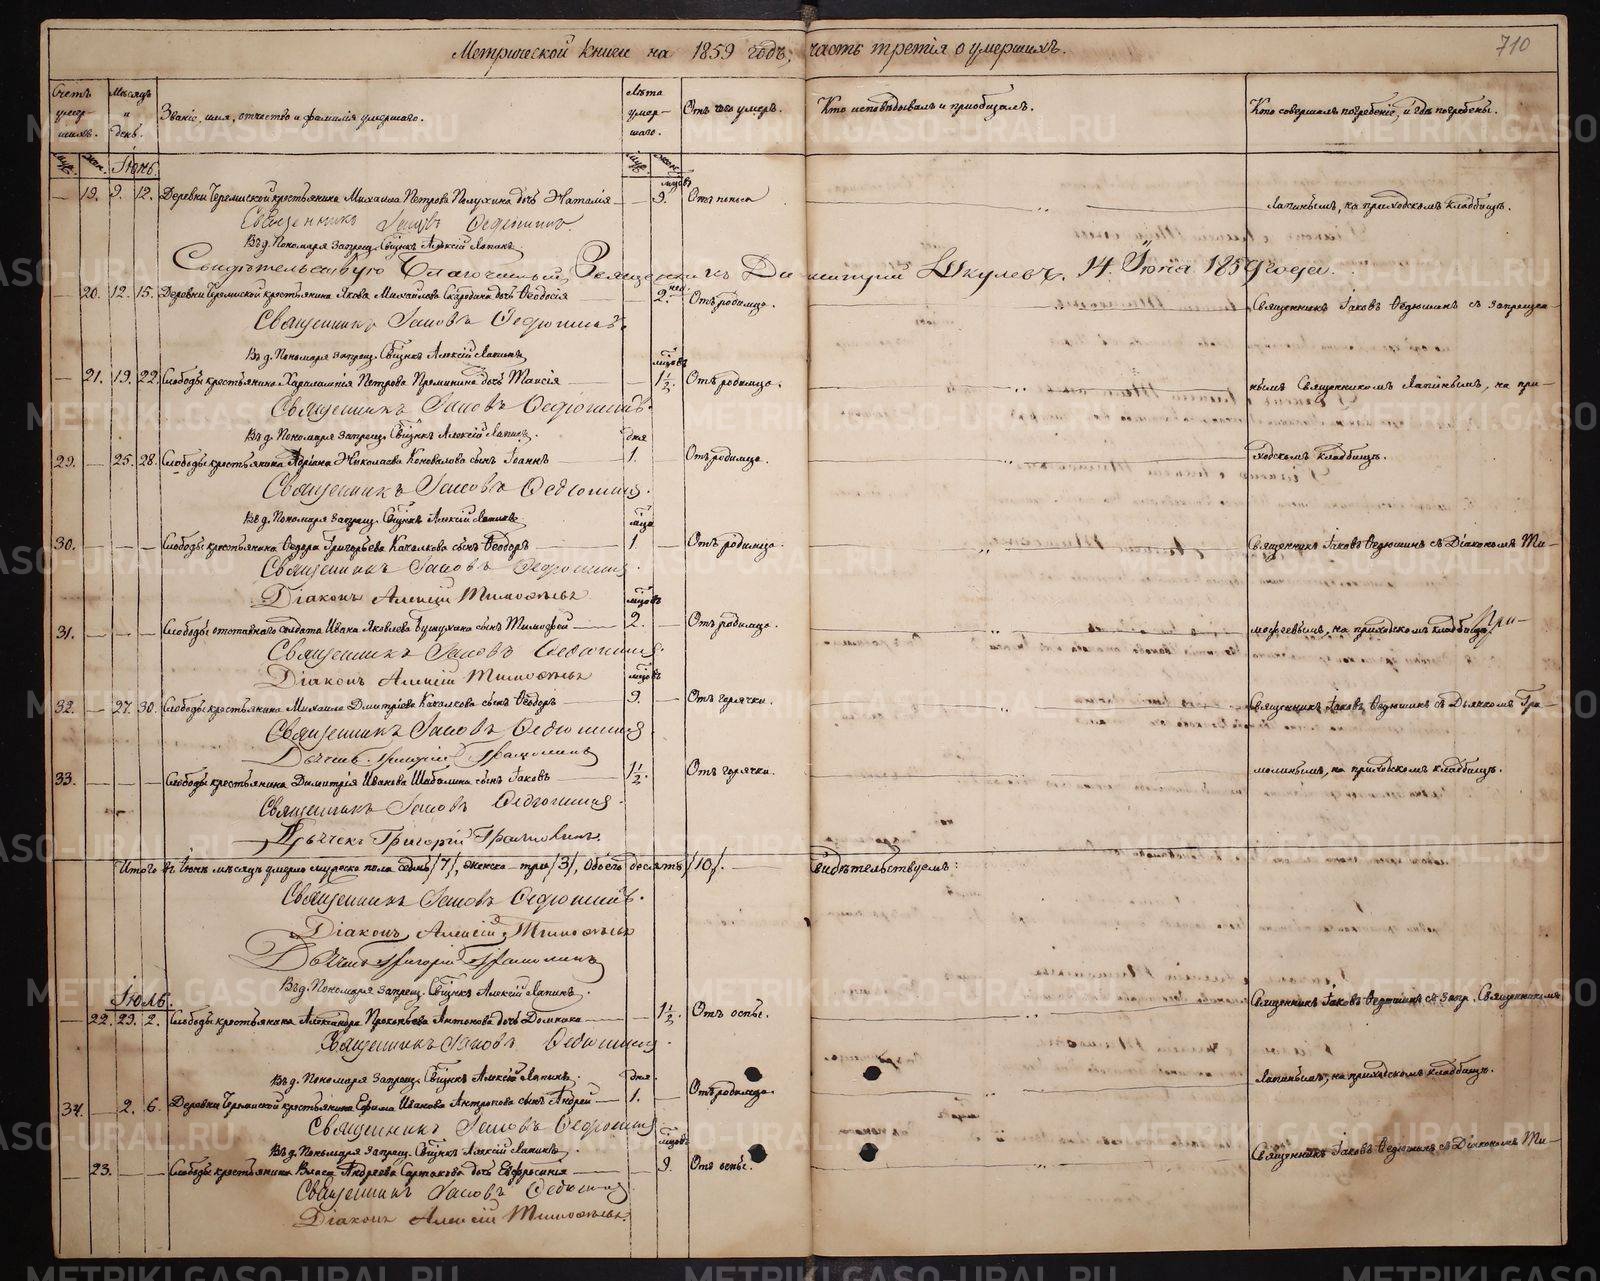 Метрической книги на 1859 годъ, часть третія о умершихъ.
710
Счетъ умер-шихъ. Мѣсяцъ и день. Званіе, имя, отчество и фамилія умершаго. Лѣта умер-шаго. Отъ чего умеръ. Кто исповѣдывалъ и пріобщалъ. Кто совершалъ погребеніе, и гдѣ погребены.
муж. жен. Іюнь. муж. жен.
мцовъ
19. 9. 12. Деревни Черемиской крестьянина Михаила Петрова Полухина дочь Наталія 9. Отъ поноса Лапинымъ, на приходскомъ кладбищѣ.
Священникъ Іаковъ Ѳедюшинъ
Въ д. Пономаря запрещ. Свщнкъ Алексій Лапинъ.
Свидѣтельствую Благочинный, Священникъ Димитрій Шкулевъ. 14. Іюня 1859 года.
20. 12. 15. Деревни Черемиской крестьянина Якова Михайлова Скародина дочь Ѳеодосія 2. нед. Отъ родимца. Священникъ Іаковъ Ѳедюшинъ съ запрещен-
Священникъ Іаковъ Ѳедюшинъ.
Въ д. Пономаря запрещ. Свщнкъ Алексій Лапинъ мцовъ
21. 19. 22. Слободы крестьянина Харалампія Петрова Преминина дочь Таисія 1½. Отъ родимца. нымъ Священникомъ Лапинымъ, на при-
Священникъ Іаковъ Ѳедюшинъ.
Въ д. Пономаря запрещ. Свщнкъ Алексій Лапинъ. дня
29. 25. 28. Слободы крестьянина Адріана Николаева Коновалова сынъ Іоаннъ 1. Отъ родимца. ходскомъ кладбищѣ.
Священникъ Іаковъ Ѳедюшинъ.
Въ д. Пономаря запрещ. Свщнкъ Алексій Лапинъ мца
30. Слободы крестьянина Ѳедора Григорьева Качалкова сынъ Ѳеодоръ 1. Отъ родимца. Священникъ Іаковъ Ѳедюшинъ съ Діакономъ Ти-
Священникъ Іаковъ Ѳедюшинъ.
Діаконъ Алексій Тимоѳеевъ мцовъ
31. Слободы отставнаго солдата Ивана Яковлева сынъ Тимоѳей 2. Отъ родимца. моѳеевымъ, на приходскомъ кладбищѣ.
Священникъ Іаковъ Ѳедюшинъ.
Діаконъ Алексій Тимоѳеевъ мцовъ
32. 27. 30. Слободы крестьянина Михаила Дмитріева Качалкова сынъ Ѳеодоръ 9. Отъ горячки. Священникъ Іаковъ Ѳедюшинъ съ Дьячкомъ Гра-
Священникъ Іаковъ Ѳедюшинъ
Дьячекъ Григорій Грамолинъ
33. Слободы крестьянина Димитрія Иванова Шабалина сынъ Іаковъ 1½. Отъ горячки. молинымъ, на приходскомъ кладбищѣ.
Священникъ Іаковъ Ѳедюшинъ.
Дьячекъ Григорій Грамолинъ.
Итого въ Іюнѣ мѣсяцѣ умерло мужеска пола семь /7/, женска три /3/, обоего десять /10/. Свидѣтельствуемъ:
Священникъ Іаковъ Ѳедюшинъ.
Діаконъ Алексій Тимоѳеевъ
Дьячекъ Григорій Грамолинъ
Въ д. Пономаря запрещ. Свщнкъ Алексій Лапинъ.
Іюль.
22. 29. 2. Слободы крестьянина Александра Прокопьева Антонова дочь Домника 1½. Отъ оспы. Священникъ Іаковъ Ѳедюшинъ съ запр. Священникомъ
Священникъ Іаковъ Ѳедюшинъ.
Въ д. Пономаря запрещ. Свщнкъ Алексій Лапинъ. дня. Лапинымъ, на приходскомъ кладбищѣ.
34. 2. 6. Деревни Черемиской крестьянина Ефима Иванова Антропова сынъ Андрей 1. Отъ родимца.
Священникъ Іаковъ Ѳедюшинъ
Въ д. Пономаря запрещ. Свщнкъ Алексій Лапинъ. мцовъ
23. Слободы крестьянина Власа Андреева Сартакова дочь Евфросинія 9. Отъ оспы. Священникъ Іаковъ Ѳедюшинъ съ Діакономъ Ти-
Священникъ Іаковъ Ѳедюшинъ
Діаконъ Алексій Тимоѳеевъ.
METRIKI.GASO-URAL.RU